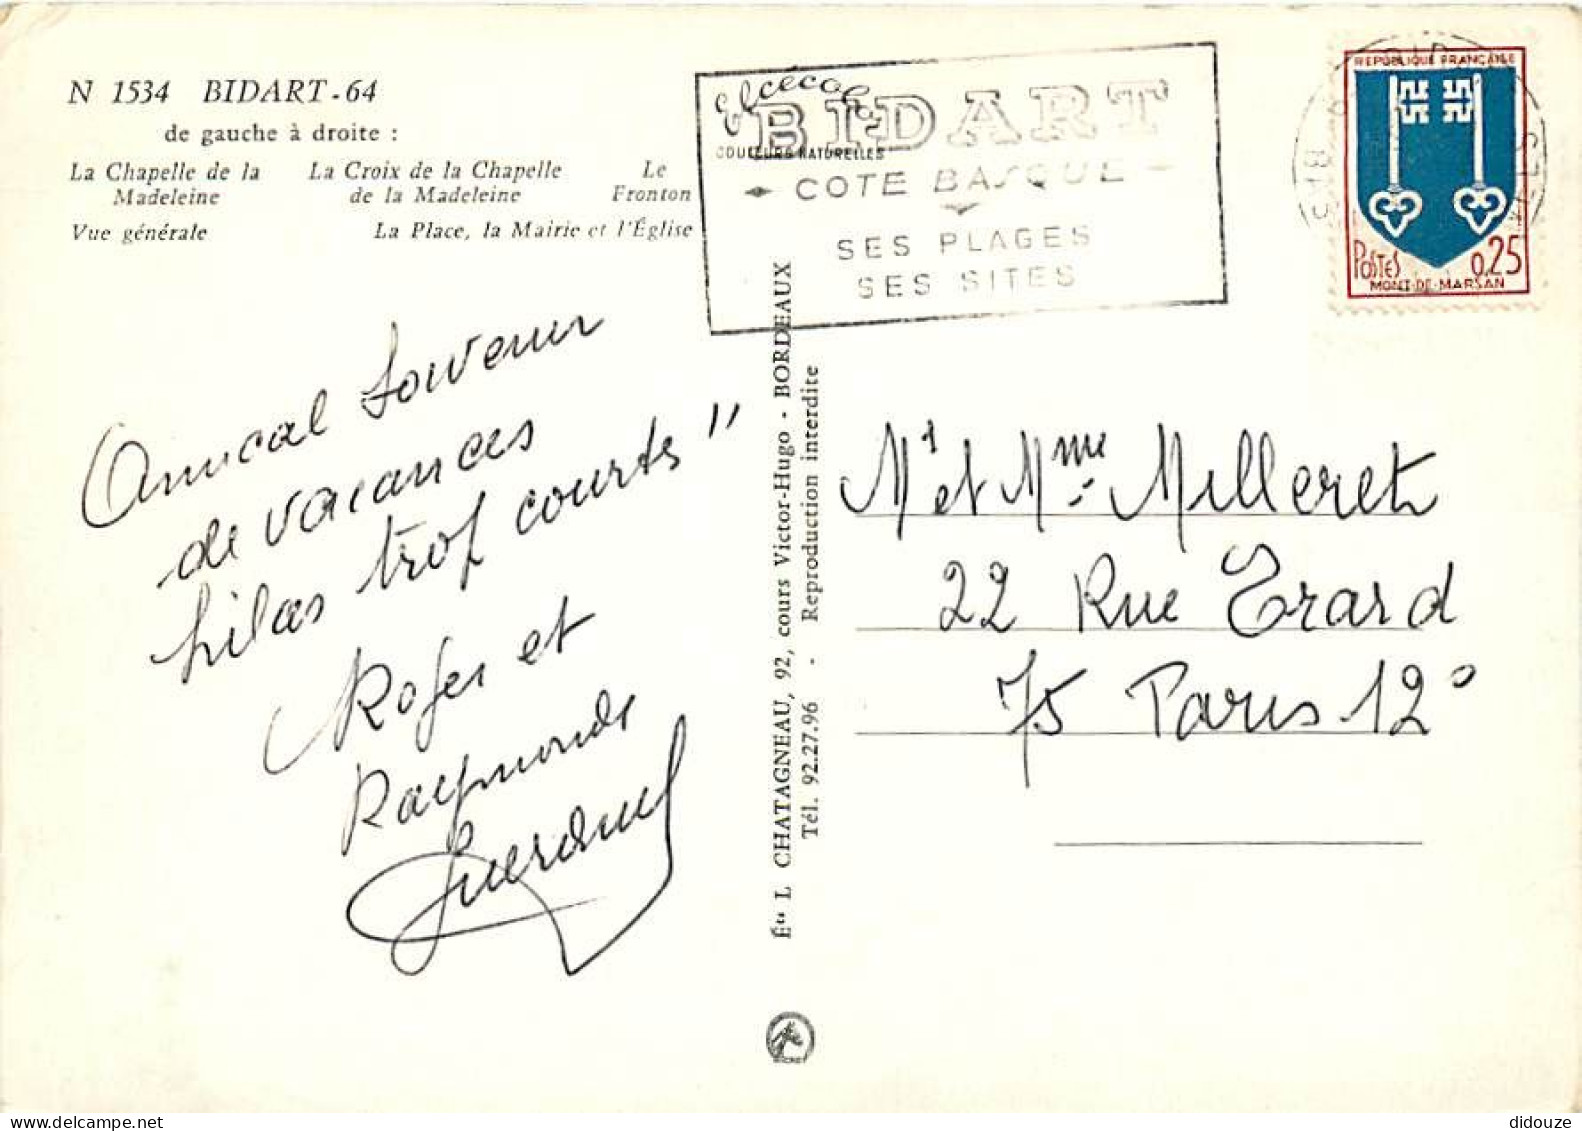 N 1534 BIDART-64
de gauche à droite :
La Chapelle de la Madeleine
La Croix de la Chapelle de la Madeleine
Le Fronton
Vue générale
La Place, la Mairie et l'Église
elcécolor
COULEURS NATURELLES
BIDART
COTE BASQUE
SES PLAGES
SES SITES
REPUBLIQUE FRANÇAISE
POSTES 0,25
MONT-DE-MARSAN
Amical souvenir
de vacances
hélas trop courtes"
Roger et
Raymonde
Éts L CHATAGNEAU, 92, cours Victor-Hugo - BORDEAUX
Tél. 92.27.96 - Reproduction interdite
Mr et Mme Milleret
22 Rue Erard
75 Paris 12°
didouze